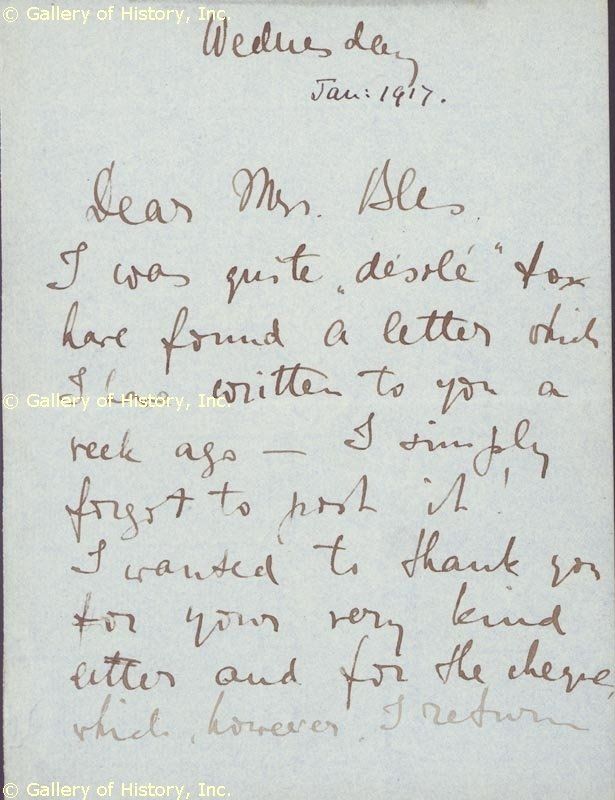 © Gallery of History, Inc.
Wednesday
Jan: 1917.
Dear Mrs. Bles.
I was quite „désolé“ to
have found a letter which
I have written to you a
© Gallery of History, Inc.
week ago — I simply
forgot to post it!
I wanted to thank you
for your very kind
letter and for the cheque,
which, however, I return
© Gallery of History, Inc.